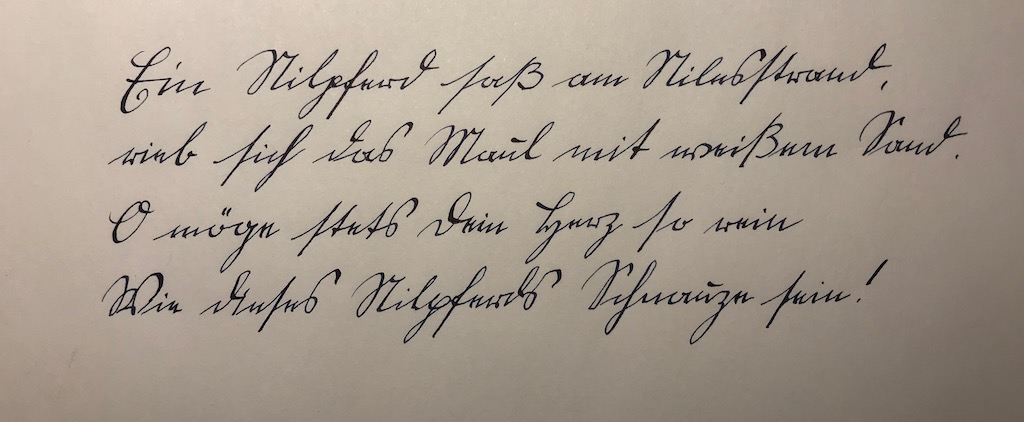 Ein Nilpferd saß am Nilesstrand,
rieb sich das Maul mit weißem Sand.
O möge stets Dein Herz so rein
Wie dieses Nilpferds Schnauze sein!